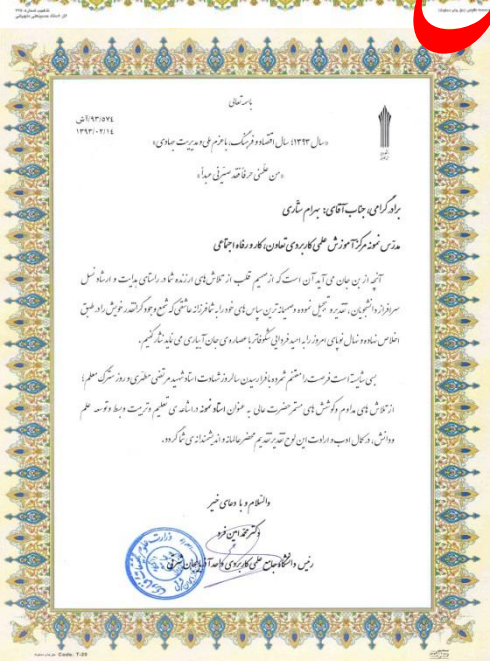 باسمه تعالی
۹۳/۰۵۷۴/آش
۱۳۹۳/۰۲/۱۴
«سال ۱۳۹۳؛ سال اقتصاد و فرهنگ، با عزم ملی و مدیریت جهادی»
«من علّمنی حرفاً فقد صیّرنی عبداً»
برادر گرامی، جناب آقای: بهرام ستّاری
مدرّس نمونه مرکز آموزش علمی کاربردی تعاون، کار و رفاه اجتماعی
آنچه از بن جان می آید آن است که از صمیم قلب از تلاش های ارزنده شما در راستای هدایت و ارشاد نسل
سرافراز دانشجویان، تقدیر و تجلیل نموده و صمیمانه ترین سپاس های خود را به شما فرزانه عاشقی که شمع وجود گرانقدر خویش را در طبق
اخلاص نهاده و نهال نوپای امروز را به امید فردایی شکوفاتر با عصاره ی جان آبیاری می نماید نثار کنیم.
بسی شایسته است فرصت را مغتنم شمرده با فرا رسیدن سالروز شهادت استاد شهید مرتضی مطهّری و روز سترگ معلم؛
از تلاش های مداوم و کوشش های مستمر حضرت عالی به عنوان استاد نمونه در اشاعه ی تعلیم و تربیت و بسط و توسعه علم
و دانش، در کمال ادب و ارادت این لوح تقدیر تقدیم محضر عالمانه و اندیشمندانه ی شما گردد.
والسلام و با دعای خیر
دکتر محمد امین فرد
رئیس دانشگاه جامع علمی کاربردی واحد آذربایجان شرقی
Code: T-20